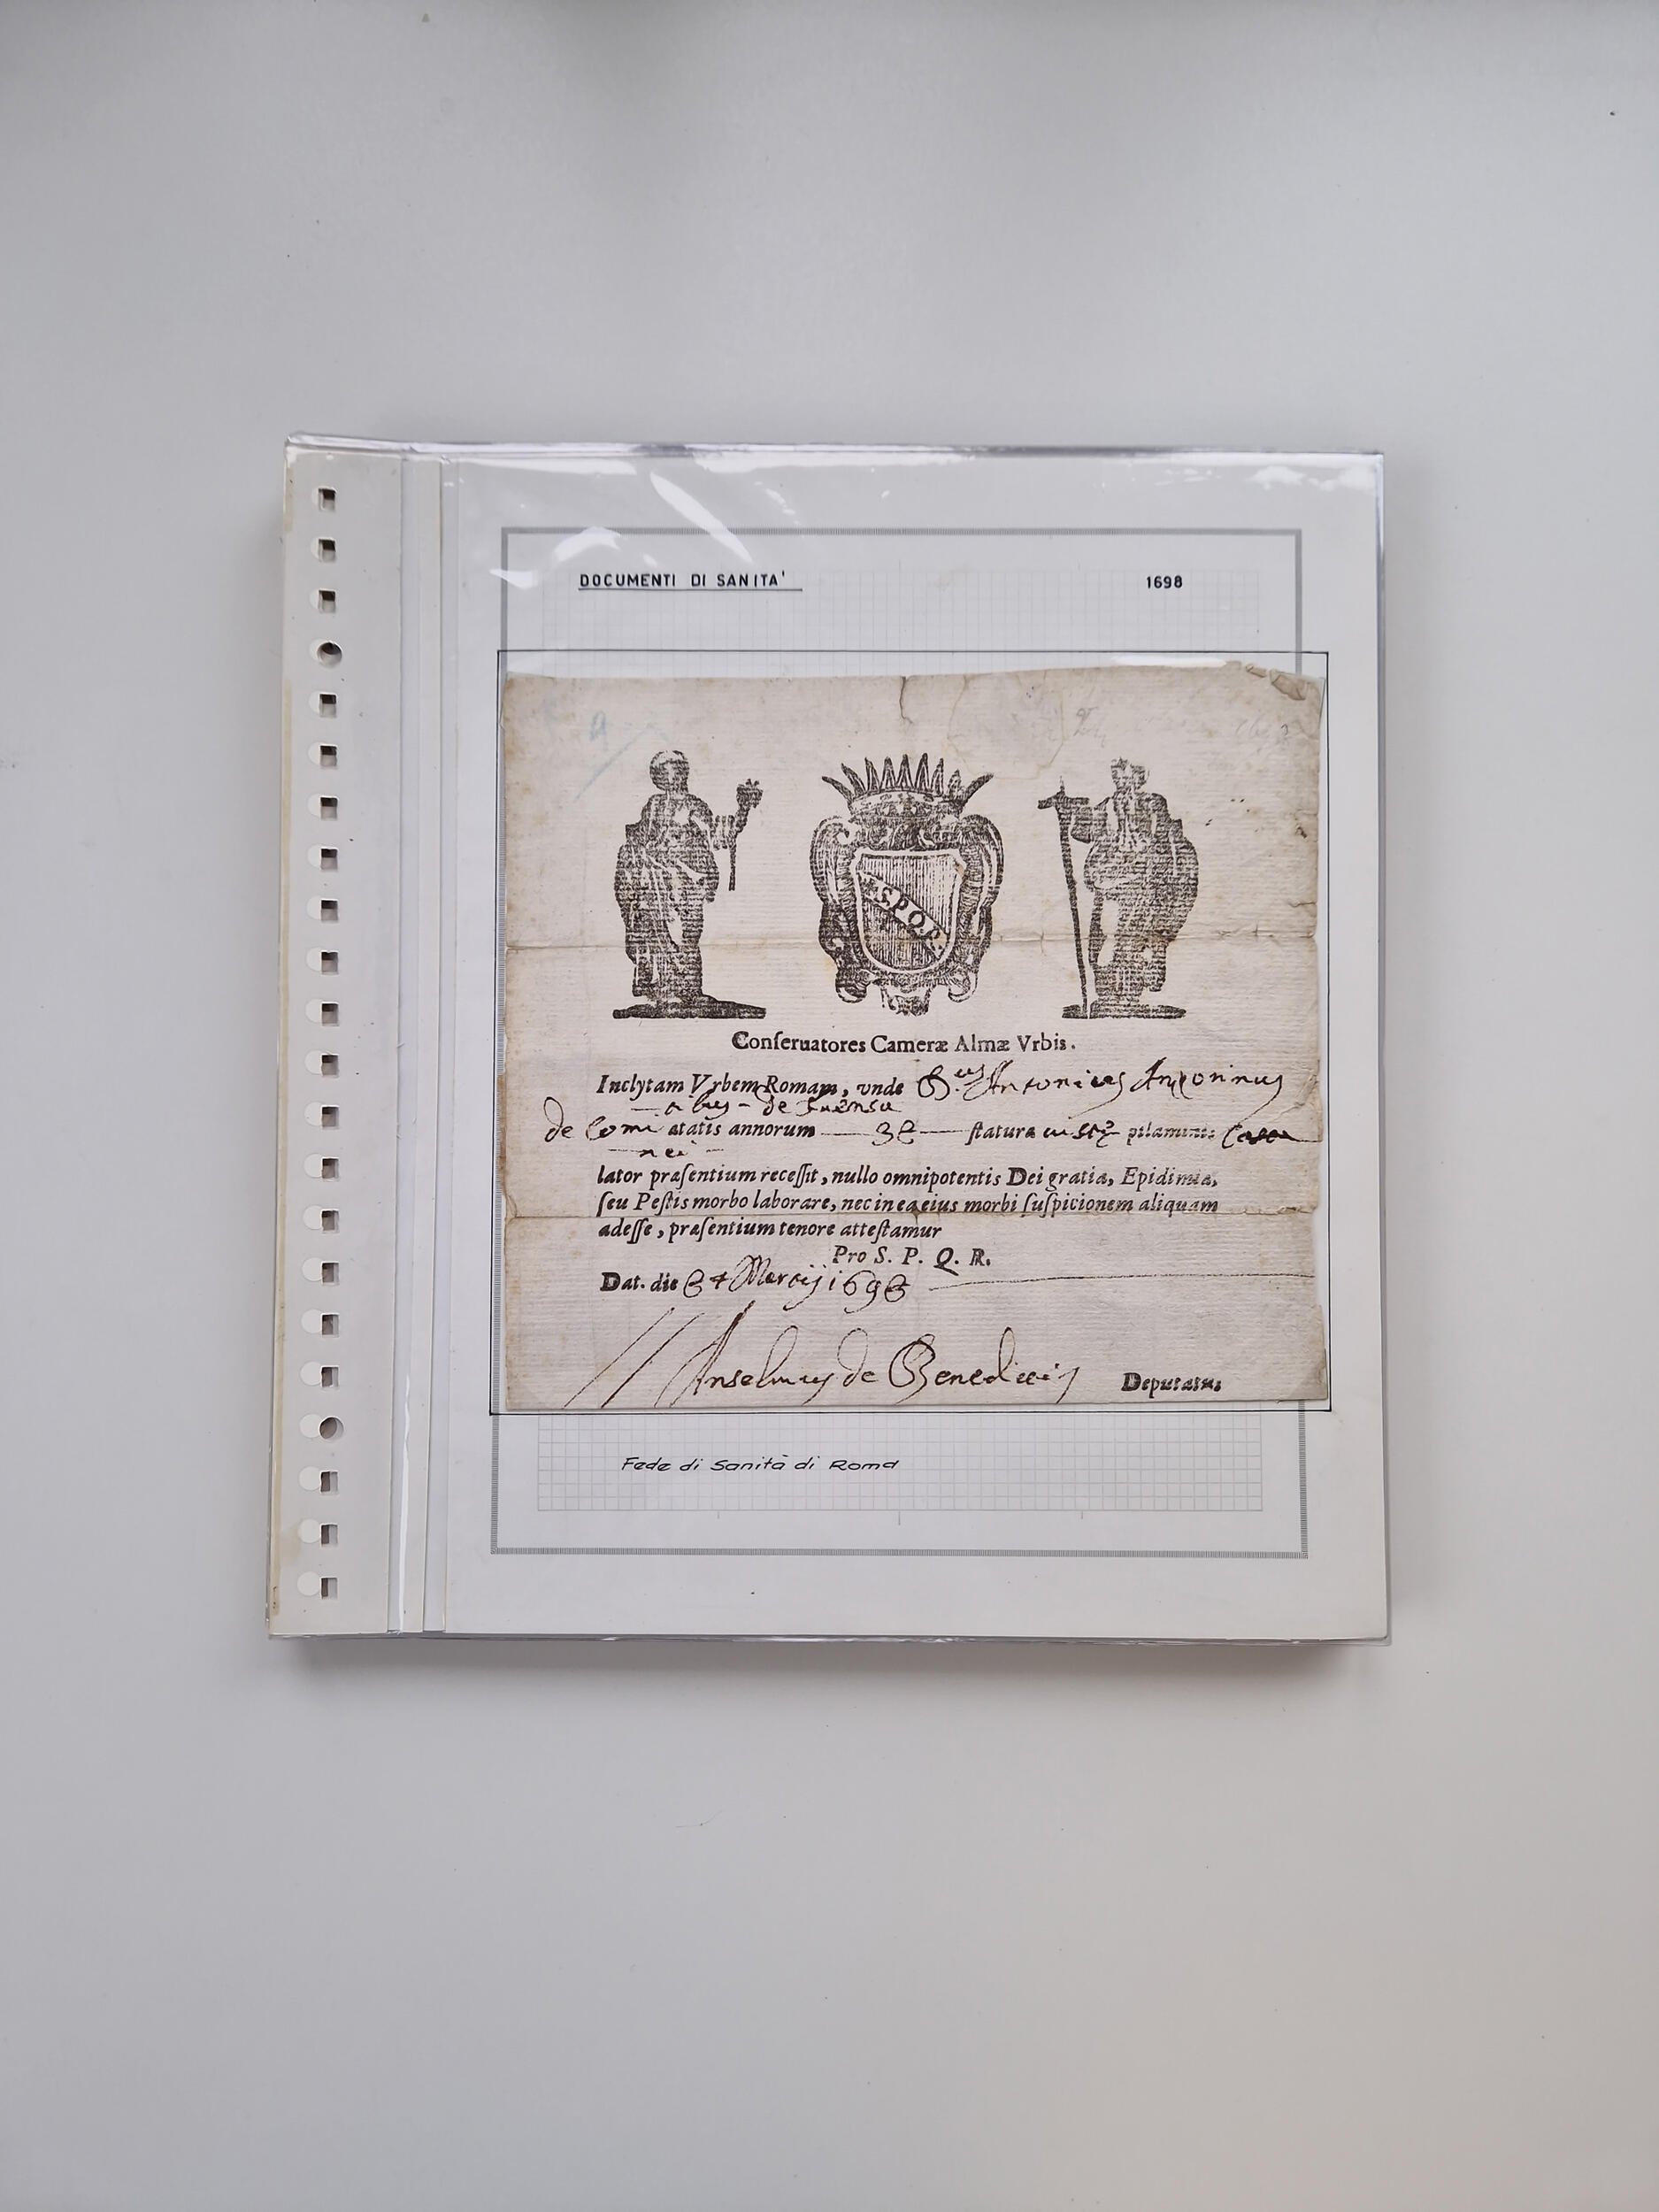 DOCUMENTI DI SANITA' 1698
S.P.Q.R.
Conſeruatores Cameræ Almæ Vrbis.
Inclytam Vrbem Romam, vnde Antonius Antoninus
de Comi ætatis annorum ſtatura pilamine
nei
lator præſentium receſſit, nullo omnipotentis Dei gratia, Epidimia,
ſeu Peſtis morbo laborare, nec in ea eius morbi ſuſpicionem aliquam
adeſſe, præſentium tenore atteſtamur
Pro S. P. Q. R.
Dat. die Martij 1698
Anselmus de Benedictis Deputatus
Fede di Sanità di Roma